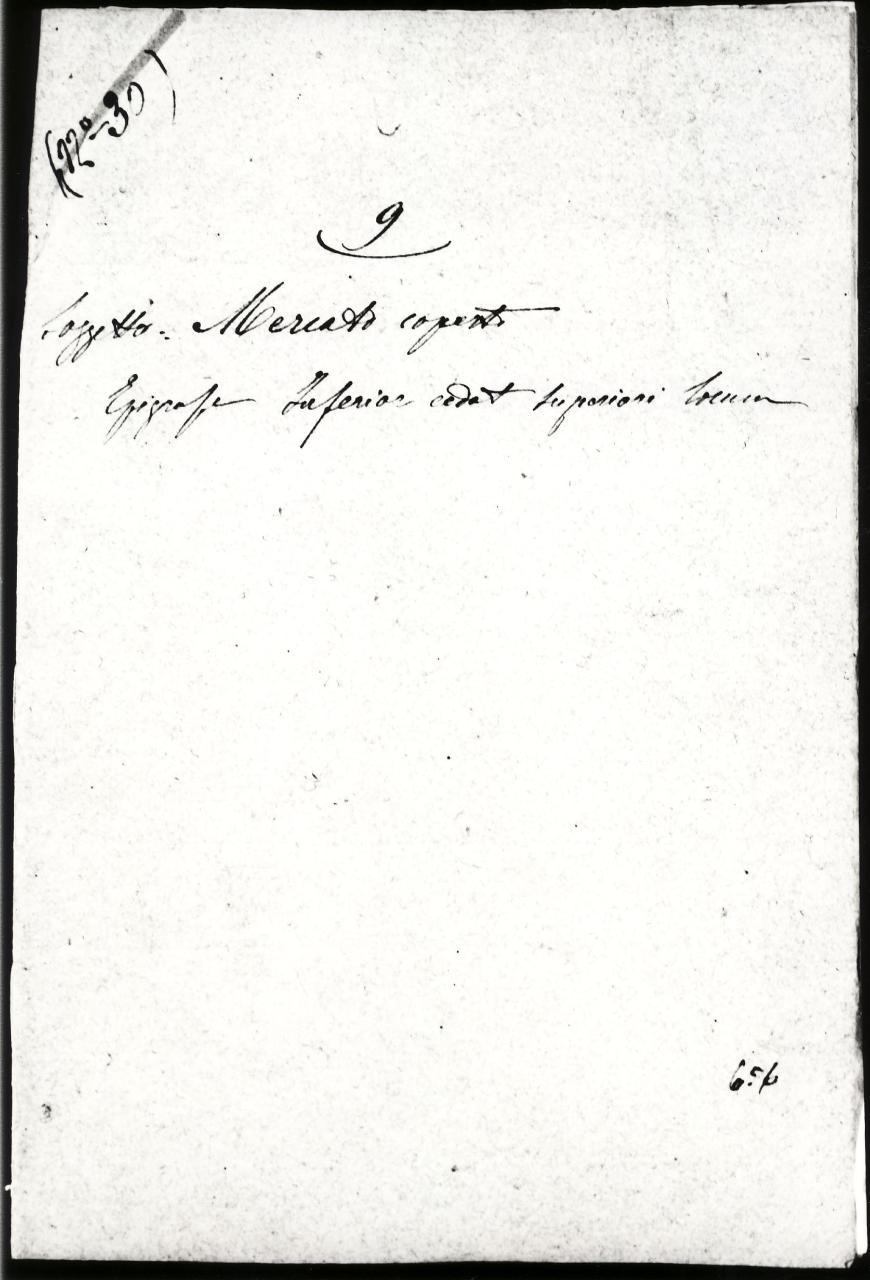 (N.º 30)
9
Soggetto. Mercato coperto
Epigrafe Inferior cedat superiori locum